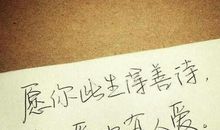 愿你此生得善待，
有人爱。